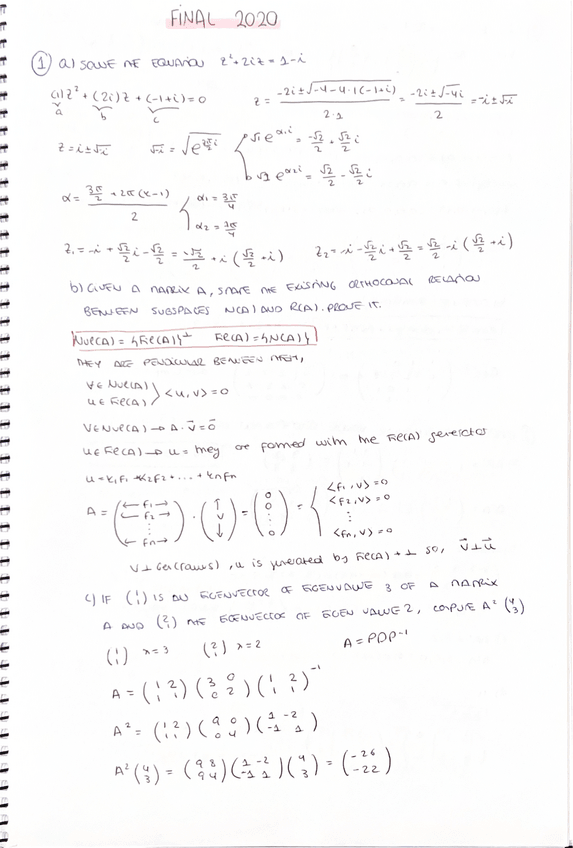 FINAL 2020
① a) SOLVE THE EQUATION z²+2iz=1-i
(1)z²+(2i)z+(-1+i)=0 z= (-2i±√(-4-4·1(-1+i)))/(2·1) = (-2i±√(-4i))/2 = -i±√-i
a b c
z=i±√-i √-i = √(e^(3π/2 i)) √1 e^(α₁i) = -√2/2 + √2/2 i
√1 e^(α₂i) = √2/2 - √2/2 i
α= (3π/2 +2π(k-1))/2 α₁= 3π/4
α₂= 7π/4
z₁=-i+√2/2 i-√2/2= -√2/2 +i(√2/2 -i) z₂=-i-√2/2 i+√2/2= √2/2 -i(√2/2 +i)
b) GIVEN A MATRIX A, STATE THE EXISTING ORTHOGONAL RELATION
BETWEEN SUBSPACES N(A) AND R(A). PROVE IT.
Nul(A) = {Fil(A)}⊥ Fil(A)={N(A)}
THEY ARE PENDICULAR BETWEEN THEM,
V∈Nul(A)
u∈Fil(A) <u,v>=0
V∈Nul(A) → A·v⃗=0⃗
u∈Fil(A) → u= they are formed with the Fil(A) generator
u=k₁f₁+k₂f₂+...+knfn
A= (← f₁ → ← f₂ → ⋮ ← fn →) · (↑ v ↓) = (0 0 ⋮ 0) = <f₁,v>=0
<f₂,v>=0
⋮
<fn,v>=0
V⊥Gen(rows), u is generated by Fil(A) → ⊥ so, v⃗⊥u⃗
c) IF (1 1) IS AN EIGENVECTOR OF EIGENVALUE 3 OF A MATRIX
A AND (2 1) THE EIGENVECTOR OF EIGEN VALUE 2, COMPUTE A² (4 3)
(1 1) λ=3 (2 1) λ=2 A=PDP⁻¹
A= (1 2 1 1) (3 0 0 2) (1 2 1 1)⁻¹
A²= (1 2 1 1) (9 0 0 4) (1 -2 -1 1)
A² (4 3) = (9 8 9 4) (1 -2 -1 1) (4 3) = (-26 -22)